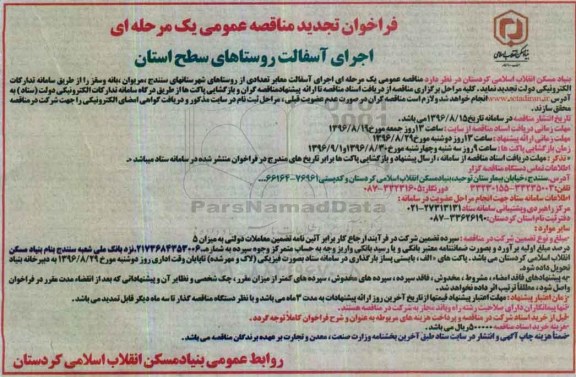 فراخوان تجدید مناقصه عمومی یک مرحله ای
اجرای آسفالت روستاهای سطح استان
بنیاد مسکن انقلاب اسلامی کردستان در نظر دارد مناقصه عمومی یک مرحله ای اجرای آسفالت معابر تعدادی از روستاهای شهرستانهای سنندج، مریوان، بانه وسقز را از طریق سامانه تدارکات
الکترونیکی دولت تجدید نماید. کلیه مراحل برگزاری مناقصه از دریافت اسناد مناقصه تا ارائه پیشنهاد مناقصه گران و بازگشایی پاکت ها از طریق درگاه سامانه تدارکات الکترونیکی دولت (ستاد) به
آدرس www.setadiran.ir انجام خواهد شد و لازم است مناقصه گران در صورت عدم عضویت قبلی، مراحل ثبت نام در سایت مذکور و دریافت گواهی امضای الکترونیکی را جهت شرکت در مناقصه
محقق سازند.
تاریخ انتشار مناقصه در سامانه تاریخ ۱۳۹۶/۸/۱۵ می باشد.
مهلت زمانی دریافت اسناد مناقصه از سایت: ساعت ۱۳ روز جمعه مورخ ۱۳۹۶/۸/۱۹
مهلت زمانی ارائه پیشنهاد: ساعت ۱۳ روز دوشنبه مورخ ۱۳۹۶/۸/۲۹
زمان بازگشایی پاکت ها: ساعت ۹ روز سه شنبه وچهارشنبه مورخ ۱۳۹۶/۸/۳۰ و ۱۳۹۶/۹/۱
تذکر: مهلت دریافت اسناد مناقصه از سامانه، ارسال پیشنهاد و بازگشایی پاکت ها برابر تاریخ های مندرج در فراخوان منتشر شده در سامانه ستاد میباشد
اطلاعات تماس دستگاه مناقصه گزار
آدرس: سنندج، خیابان بیمارستان توحید، بنیاد مسکن انقلاب اسلامی کردستان و کدپستی ۷۶۹۶۱-۶۶۱۶۴
تلفن: ۳۳۲۳۵۰۰۲-۳۳۲۳۰۱۵۵ دورنگار: ۳۳۲۳۱۶۰۵-۰۸۷
اطلاعات تماس سامانه ستاد جهت انجام مراحل عضویت در سامانه:
مرکز راهبری و پشتیبانی سامانه ستاد ۲۷۳۱۳۱۳۱-۰۲۱
دفتر ثبت نام استان کردستان: ۳۳۶۲۶۱۹۰-۰۸۷
سایر موارد:
مبلغ و نوع تضمین شرکت در مناقصه: سپرده تضمین شرکت در فرآیند ارجاع کار برابر آئین نامه تضمین معاملات دولتی به میزان ۵
درصد مبلغ اولیه برآورد و بصورت ضمانتنامه معتبر بانکی و یا رسید بانکی واریز وجه به حساب متمرکز وجوه سپرده به شماره ۲۱۷۳۶۸۴۳۵۳۰۰۶ نزد بانک ملی شعبه سنندج بنام بنیاد مسکن
انقلاب اسلامی کردستان می باشد. پاکت های «الف» بایستی پس از بارگذاری در سامانه ستاد بصورت فیزیکی (لاک و مهر شده) تا پایان وقت اداری روز دوشنبه مورخ ۱۳۹۶/۸/۲۹ به دبیرخانه بنیاد
تحویل داده شود.
به پیشنهادهای فاقد امضاء، مشروط، مخدوش، فاقد سپرده، سپرده های مخدوش، سپرده های کمتر از میزان مقرر، چک شخصی و نظایر آن و پیشنهاداتی که بعد از انقضاء مدت مقرر در فراخوان
واصل شود، مطلقاً ترتیب اثر داده نخواهد شد.
زمان اعتبار پیشنهاد: مهلت اعتبار پیشنهاد قیمتها از تاریخ آخرین روز ارائه پیشنهادات به مدت ۳ ماه می باشد و با نظر دستگاه مناقصه گذار تا سه ماه دیگر قابل تمدید می باشد.
تنها پیمانکاران دارای صلاحیت رشته راه وباند مجاز به شرکت در مناقصه هستند.
قبل از خرید اسناد شرکت در مناقصه و پرداخت هزینه های مربوطه به عنوان و شرح فراخوان کاملاً توجه گردد.
هزینه خرید اسناد مناقصه ۵۰۰۰۰۰ ریال می باشد.
ضمناً هزینه چاپ آگهی و انتشار در سایت ستاد طبق آخرین بخشنامه وزارت صنعت، معدن و تجارت بر عهده برندگان مناقصه می باشد.
روابط عمومی بنیاد مسکن انقلاب اسلامی کردستان
ParsNamadData